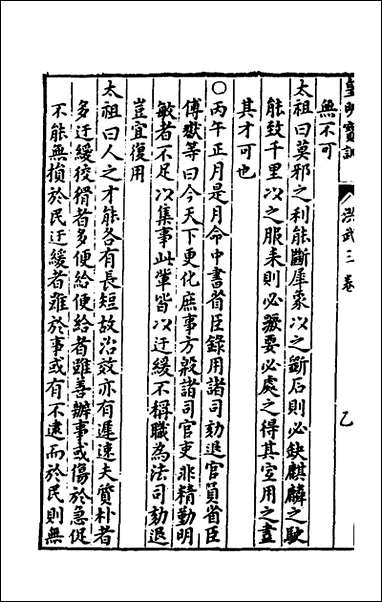 皇明寶訓
洪武三卷
乙
無不可
太祖曰莫邪之利能斷犀象以之斷石則必缺騏驎之駛
能致千里以之服耒則必蹶要必處之得其宜用之盡
其才可也
○丙午正月是月命中書省臣錄用諸司劾退官員省臣
傅瓛等曰今天下更化庶事方殷諸司官吏非精勤明
敏者不足以集事此輩皆以迂緩不稱職為法司劾退
豈宜復用
太祖曰人之才能各有長短故治效亦有遲速夫質朴者
多迂緩狡猾者多便給便給者雖善辦事或傷於急促
不能無損於民迂緩者雖於事或有不逮而於民則無